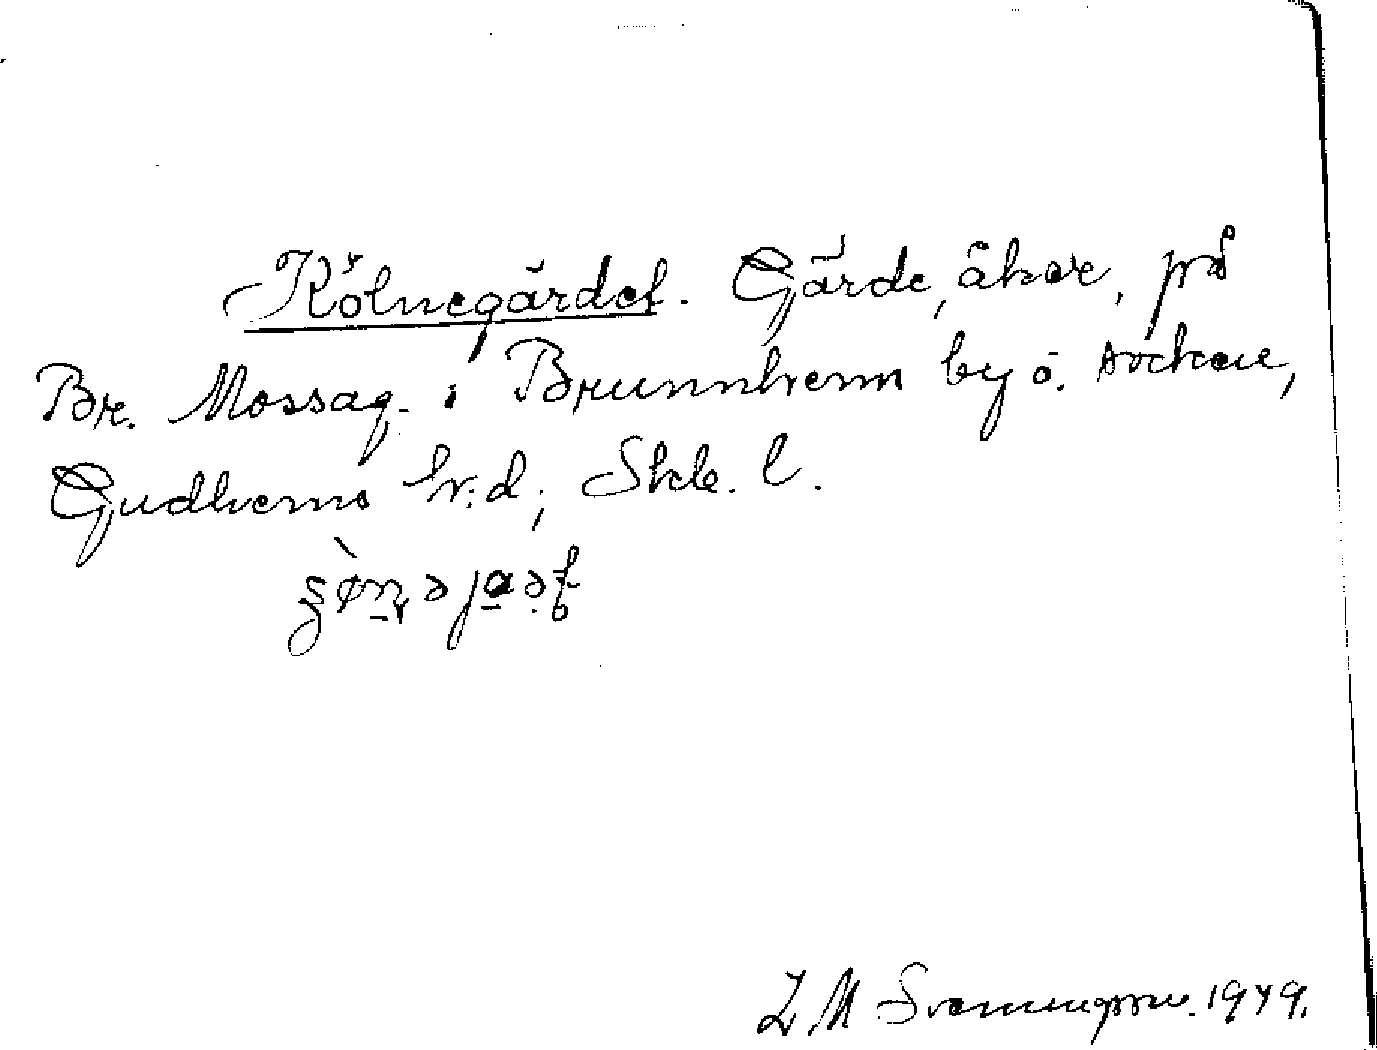 Kölnegärdet. Gärde, åker, på
Br. Mossag. i Brunnhem by o. socken,
Gudhems h:d, Skb. l.
1949.